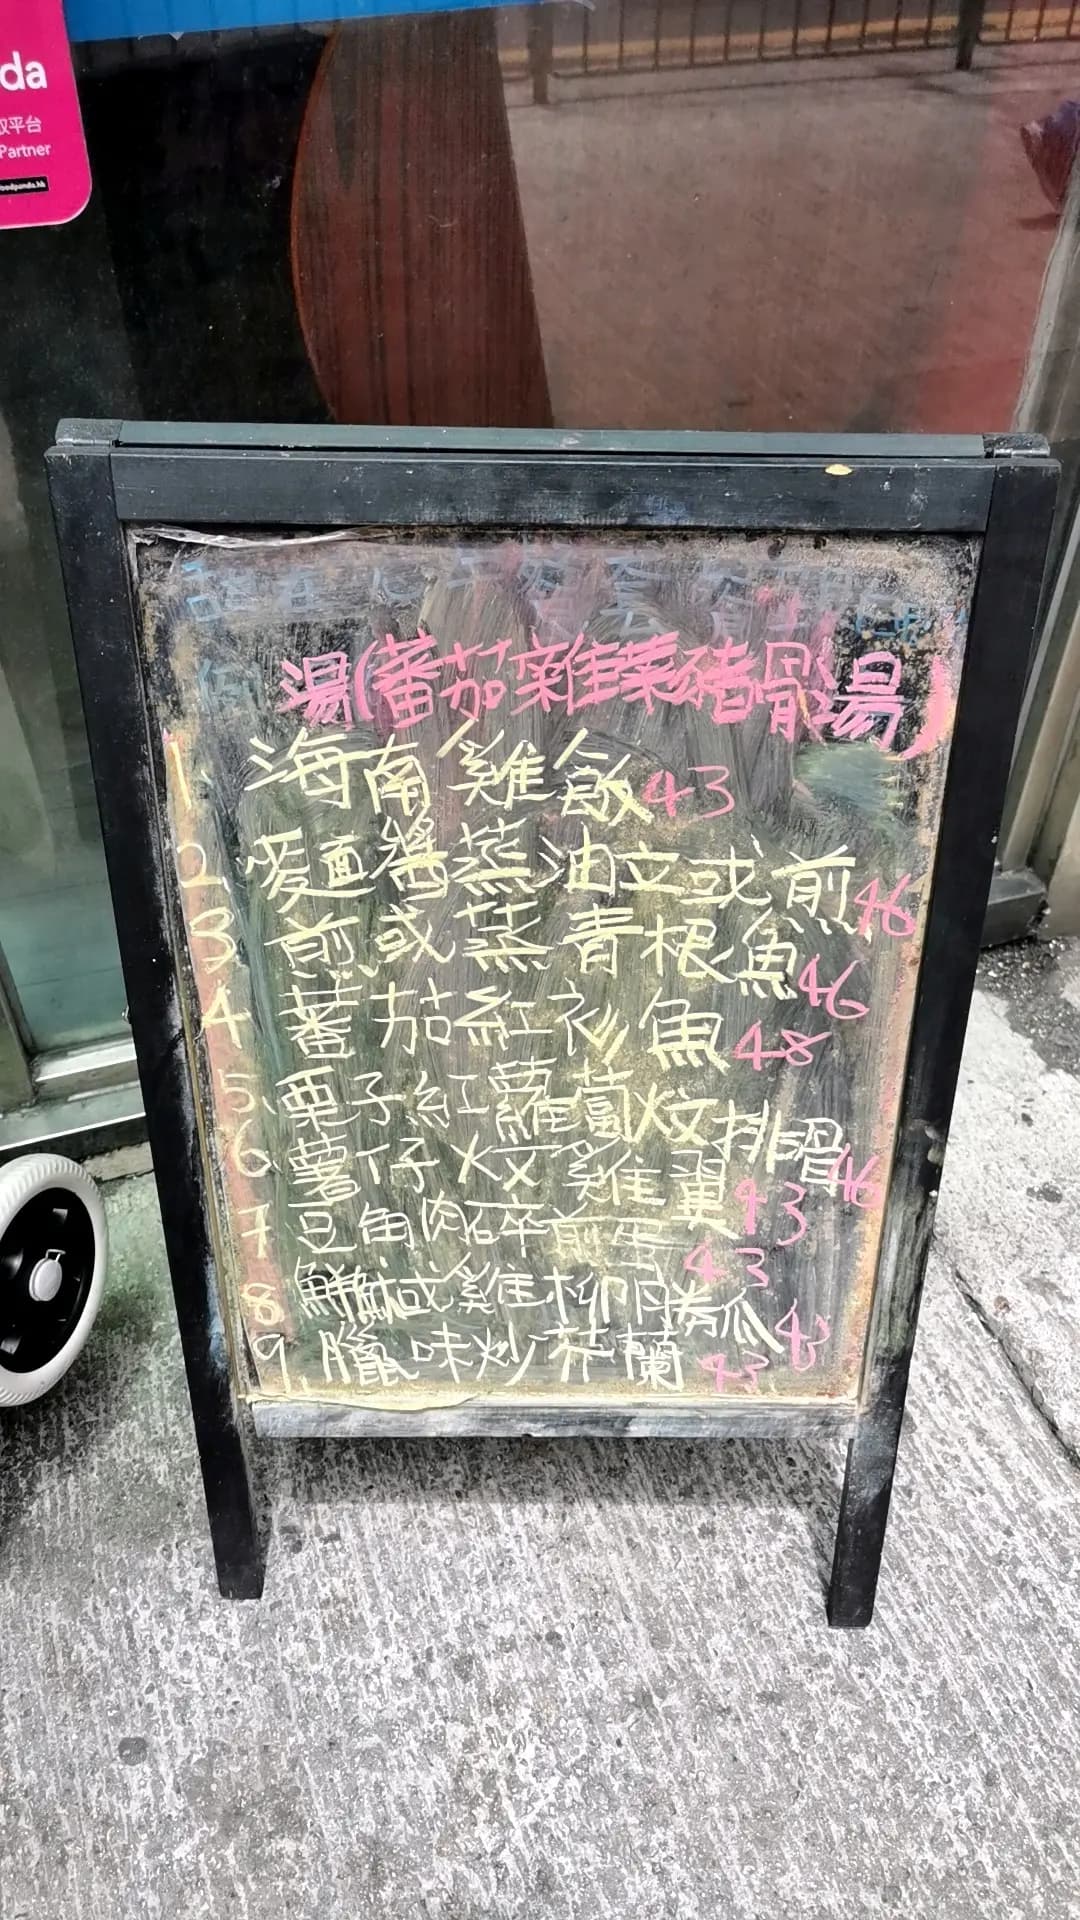 da
取平台
Partner
foodpanda.hk
湯(蕃茄雜菜豬骨湯)
1. 海南雞飯 43
2. 麵醬蒸油立或煎 46
3 煎或蒸青根魚 46
4 蕃茄紅衫魚 48
5. 栗子紅蘿蔔炆排骨 46
6. 薯仔炆雞翼 43
7 豆角肉碎煎蛋 43
8 鮮魷或雞柳 43
9. 臘味炒芥蘭 43